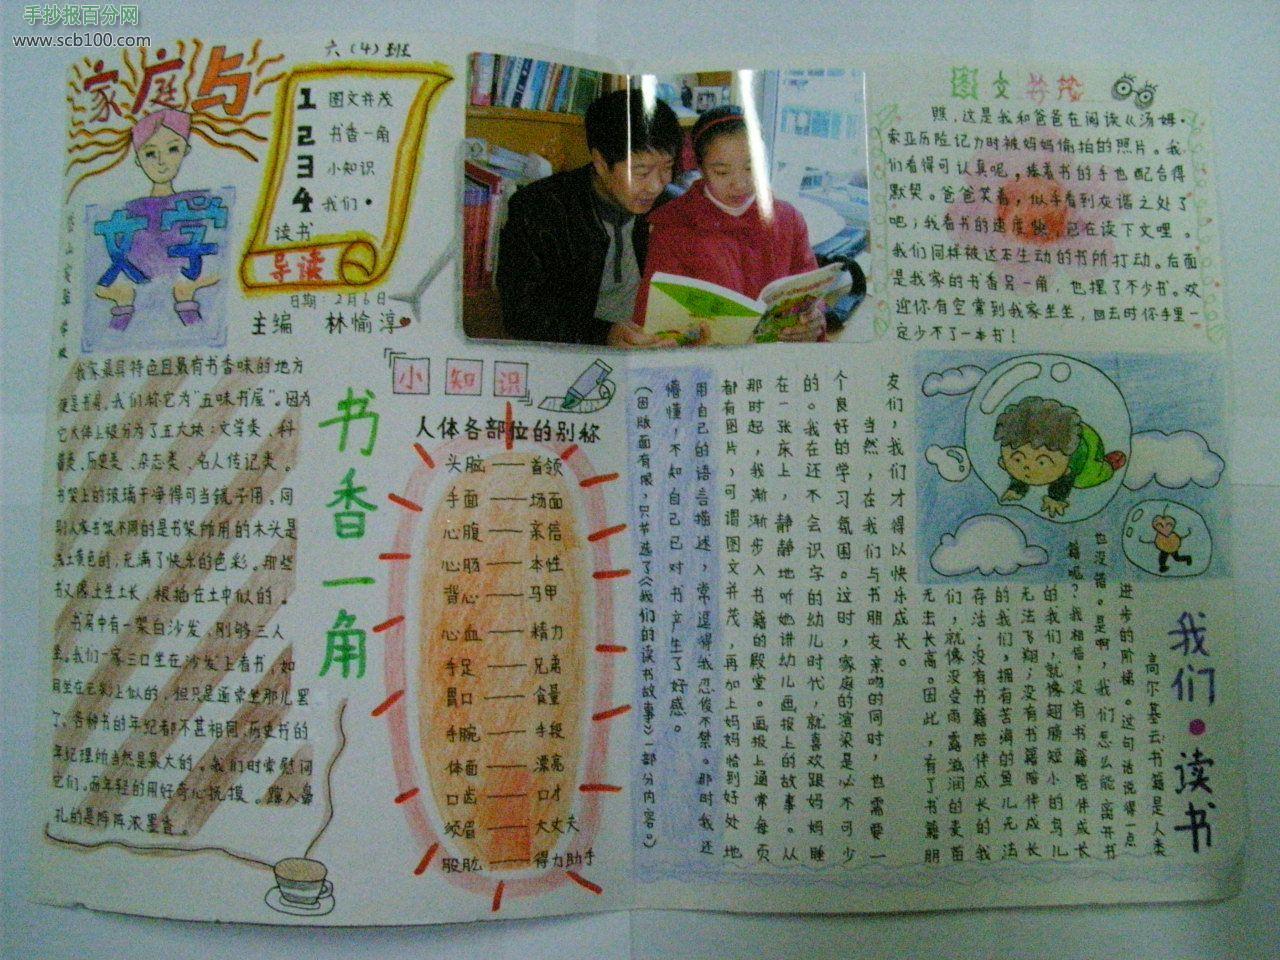 手抄报百分网
www.scb100.com
六(4)班
家庭与
文学
1 图文并茂
2 书香一角
3 小知识
4 我们·
读书
导读
日期:2月6日
主编 林愉淳
图文并茂
瞧,这是我和爸爸在阅读《汤姆·
索亚历险记》时被妈妈偷拍的照片。我
们看得可认真呢,捧着书的手也配合得
默契。爸爸笑着,似乎看到灰谐之处了
吧;我看书的速度快,已在读下文哩。
我们同样被这本生动的书所打动。后面
是我家的书香另一角,也摆了不少书。欢
迎你有空常到我家坐坐,回去时你手里一
定少不了一本书!
书香一角
我家最具特色且最有书香味的地方
便是书房。我们称它为“五味书屋”。因为
它大体上被分为了五大块:文学类、科
普类、历史类、杂志类、名人传记类。
书架上的玻璃干净得可当镜子用。同
别人家书架不同的是书架所用的木头是
浅土黄色的,充满了快乐的色彩。那些
书又像土生土长,根插在土中似的。
书房中有一架白沙发,刚够三人
坐。我们一家三口坐在沙发上看书,如
同坐在云彩上似的,但只是通常坐那儿罢
了。各种书的年纪都不甚相同,历史书的
年纪理所当然是最大的。我们时常慰问
它们。而年轻的用好奇心抚摸。蹿入鼻
孔的是阵阵浓墨香。
小知识
人体各部位的别称
头脑——首领
手面——场面
心腹——亲信
心肠——本性
背心——马甲
心血——精力
手足——兄弟
胃口——食量
手腕——手段
体面——漂亮
口齿——口才
须眉——大丈夫
股肱——得力助手
我们·读书
高尔基云书籍是人类
进步的阶梯。这句话说得一点
也没错。是啊,我们怎么能离开书
籍呢?我相信,没有书籍陪伴成长
的我们,就像翅膀短小的鸟儿
无法飞翔;没有书籍陪伴成长
的我们,拥有苦海的鱼儿无法
存活;没有书籍陪伴成长的我
们,就像没受雨露滋润的麦苗
无法长高。因此,有了书籍朋
友们,我们才得以快乐成长。
当然,在我们与书朋友亲吻的同时,也需要一
个良好的学习氛围。这时,家庭的渲染是必不可少
的。我在还不会识字的幼儿时代,就喜欢跟妈妈睡
在一张床上,静静地听她讲幼儿画报上的故事。从
那时起,我渐渐步入书籍的殿堂。画报上通常每页
都有图片,可谓图文并茂,再加上妈妈恰到好处地
用自己的语言描述,常逗得我忍俊不禁。那时我还
懵懂,不知自己已对书产生了好感。
(因版面有限,只节选了《我们的读书故事》一部分内容。)